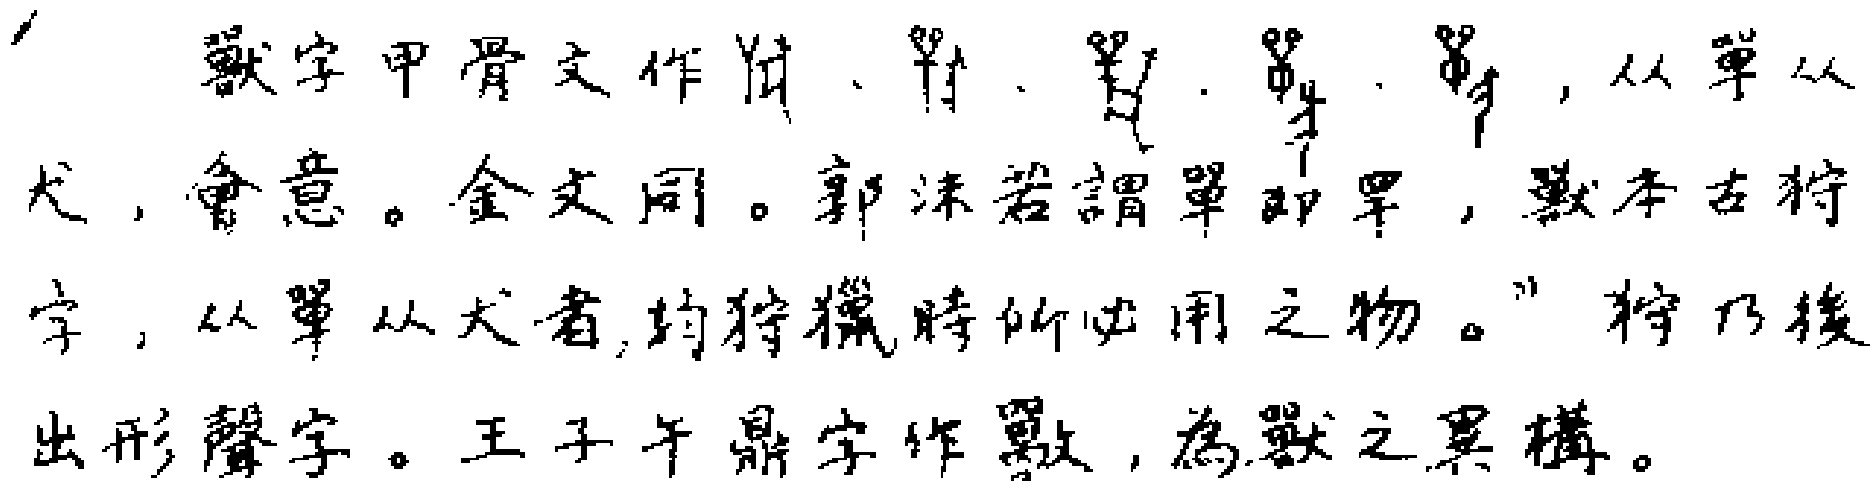 獸字甲骨文作、、、、，从單从
犬，會意。金文同。郭沫若謂單即𫁁，獸本古狩
字，从單从犬者，均狩獵時所必用之物。”狩乃後
出形聲字。王子午鼎字作，為獸之異構。